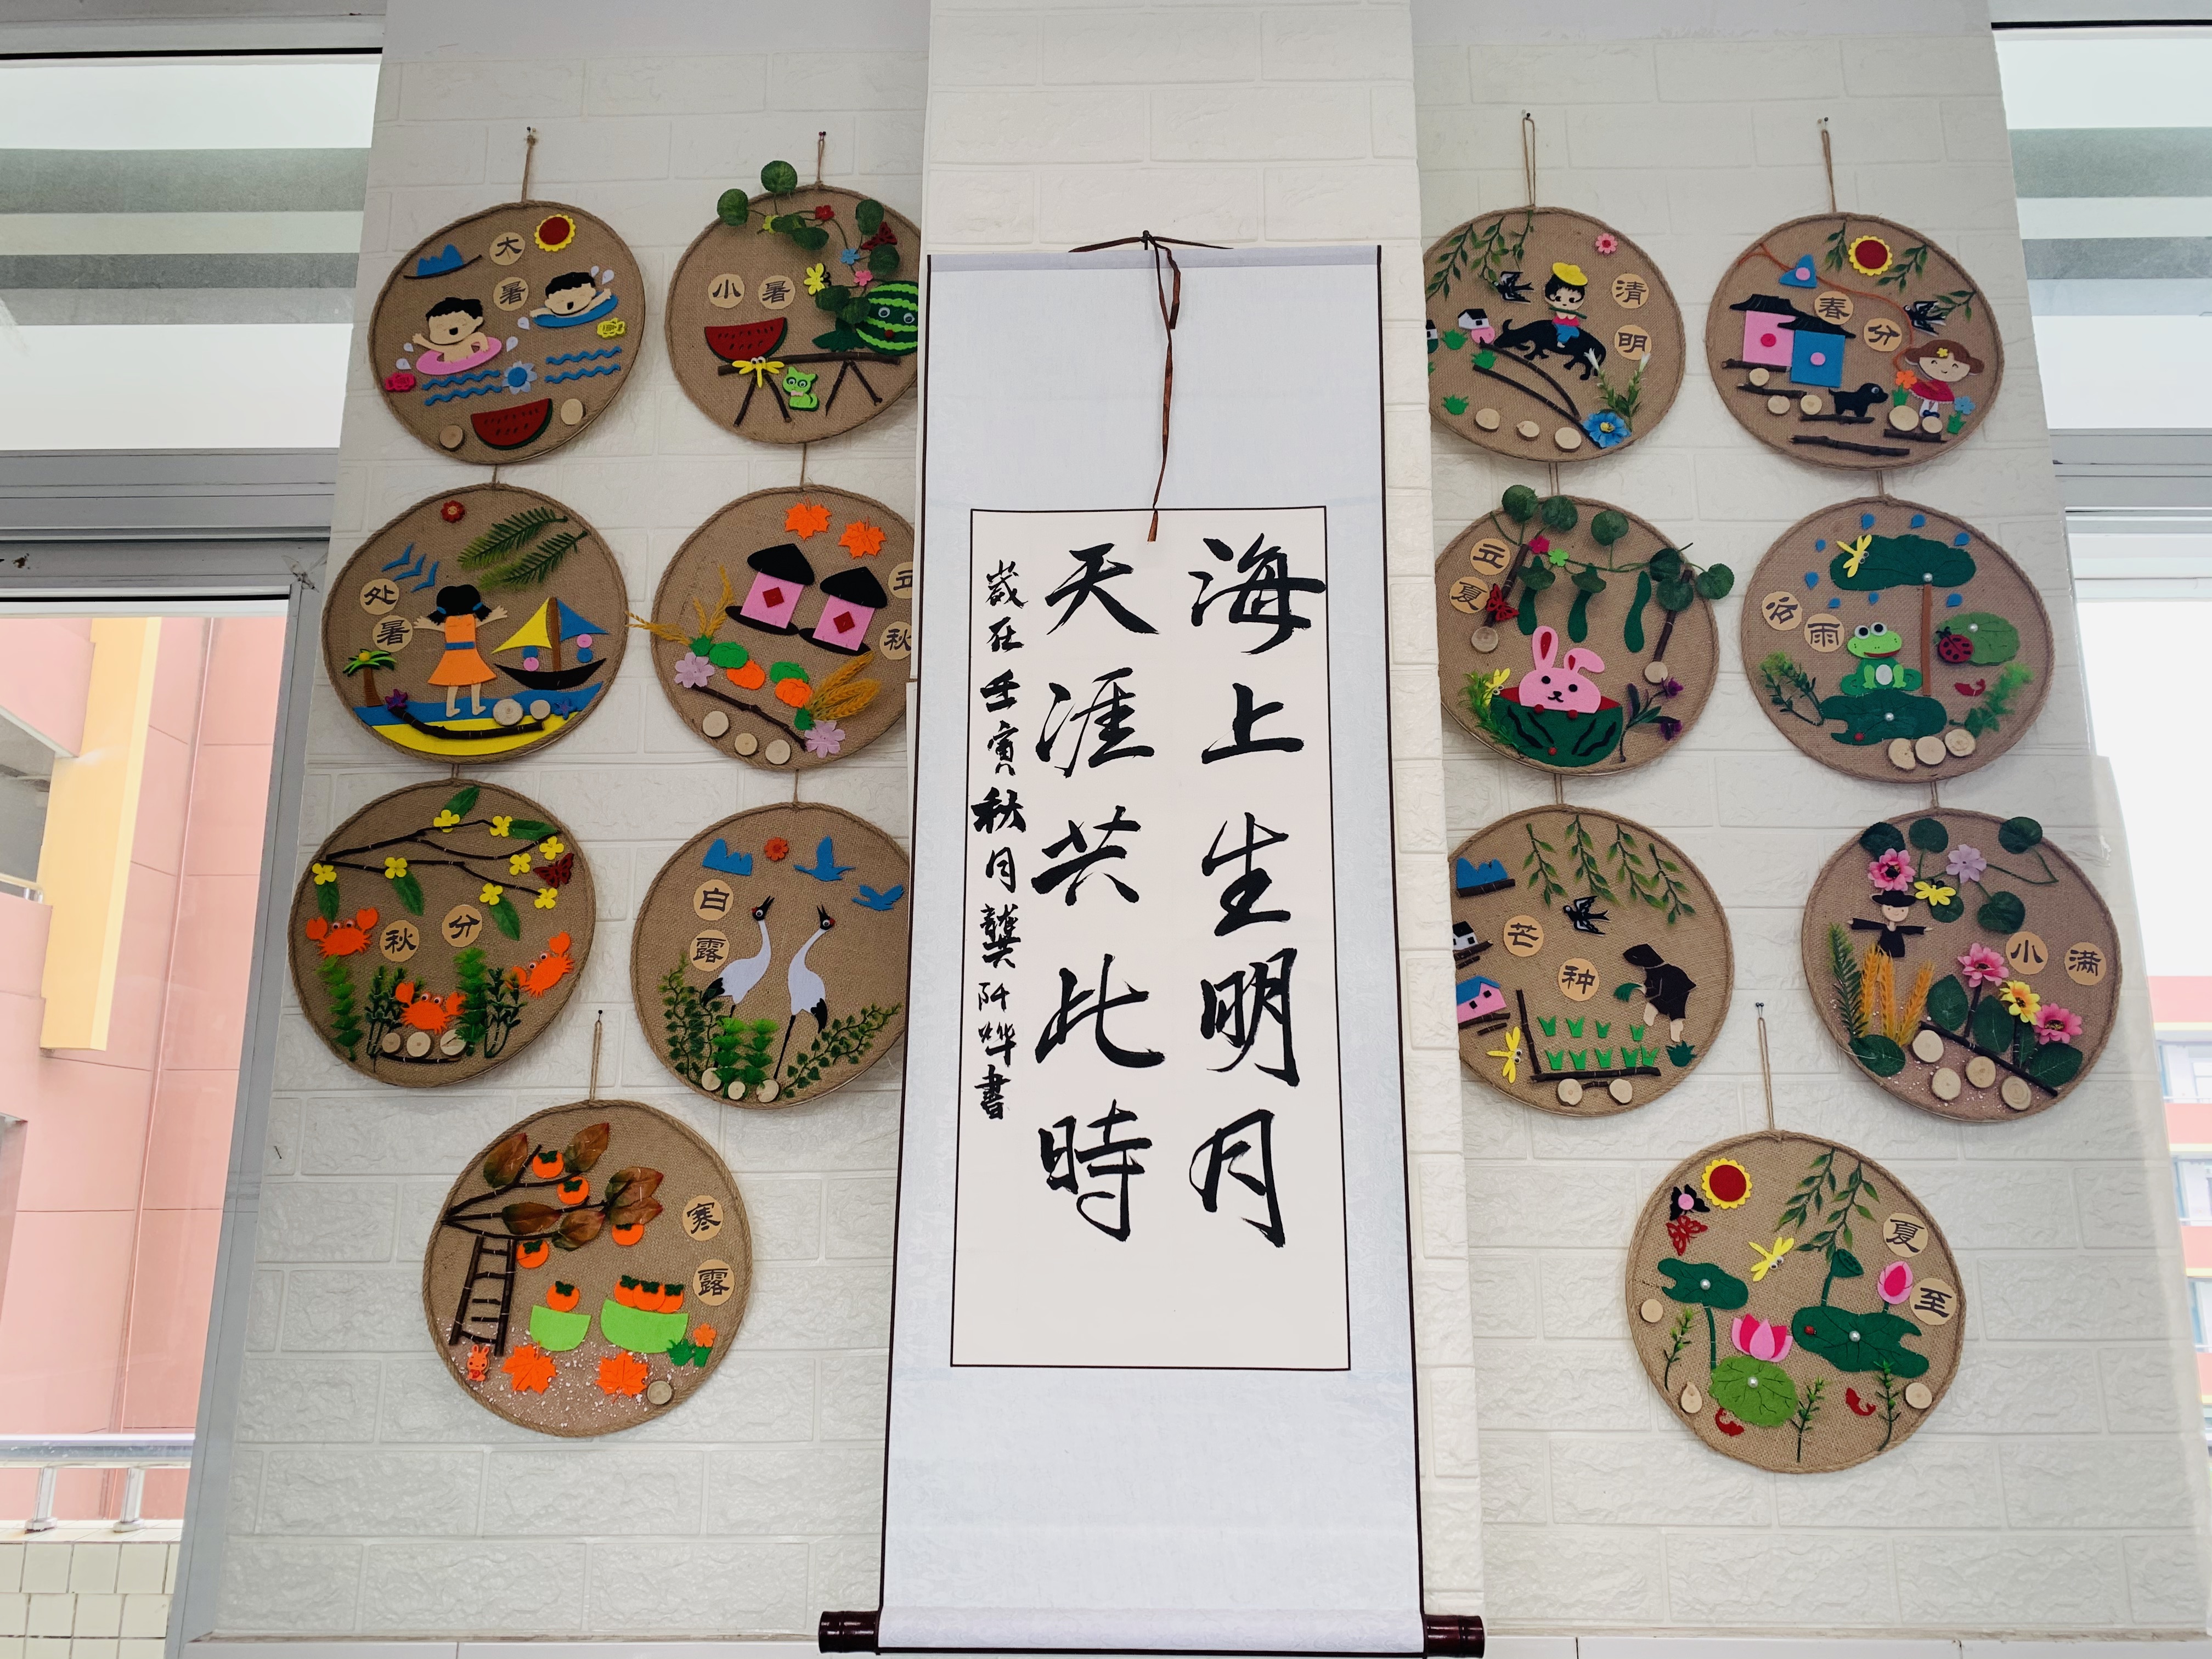 海上生明月
天涯共此時
歲在壬寅秋月龔阡燁書
大暑
小暑
清明
春分
处暑
立秋
立夏
谷雨
秋分
白露
芒种
小满
寒露
夏至